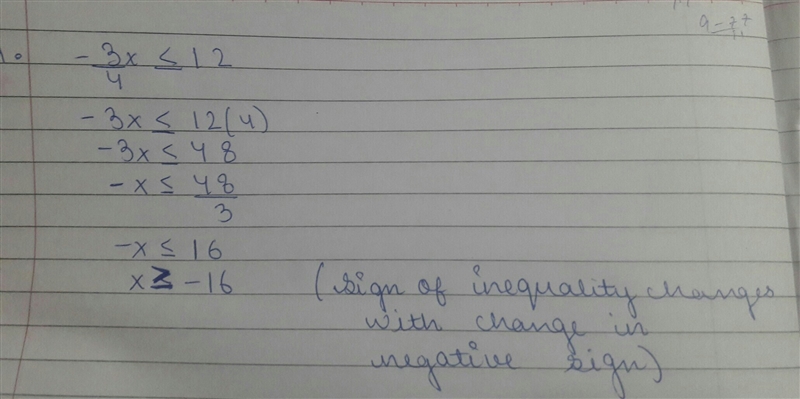 - 3x ≤ 12
4
- 3x ≤ 12(4)
-3x ≤ 48
-x ≤ 48
3
-x ≤ 16
x ≥ -16 (sign of inequality changes
with change in
negative sign)